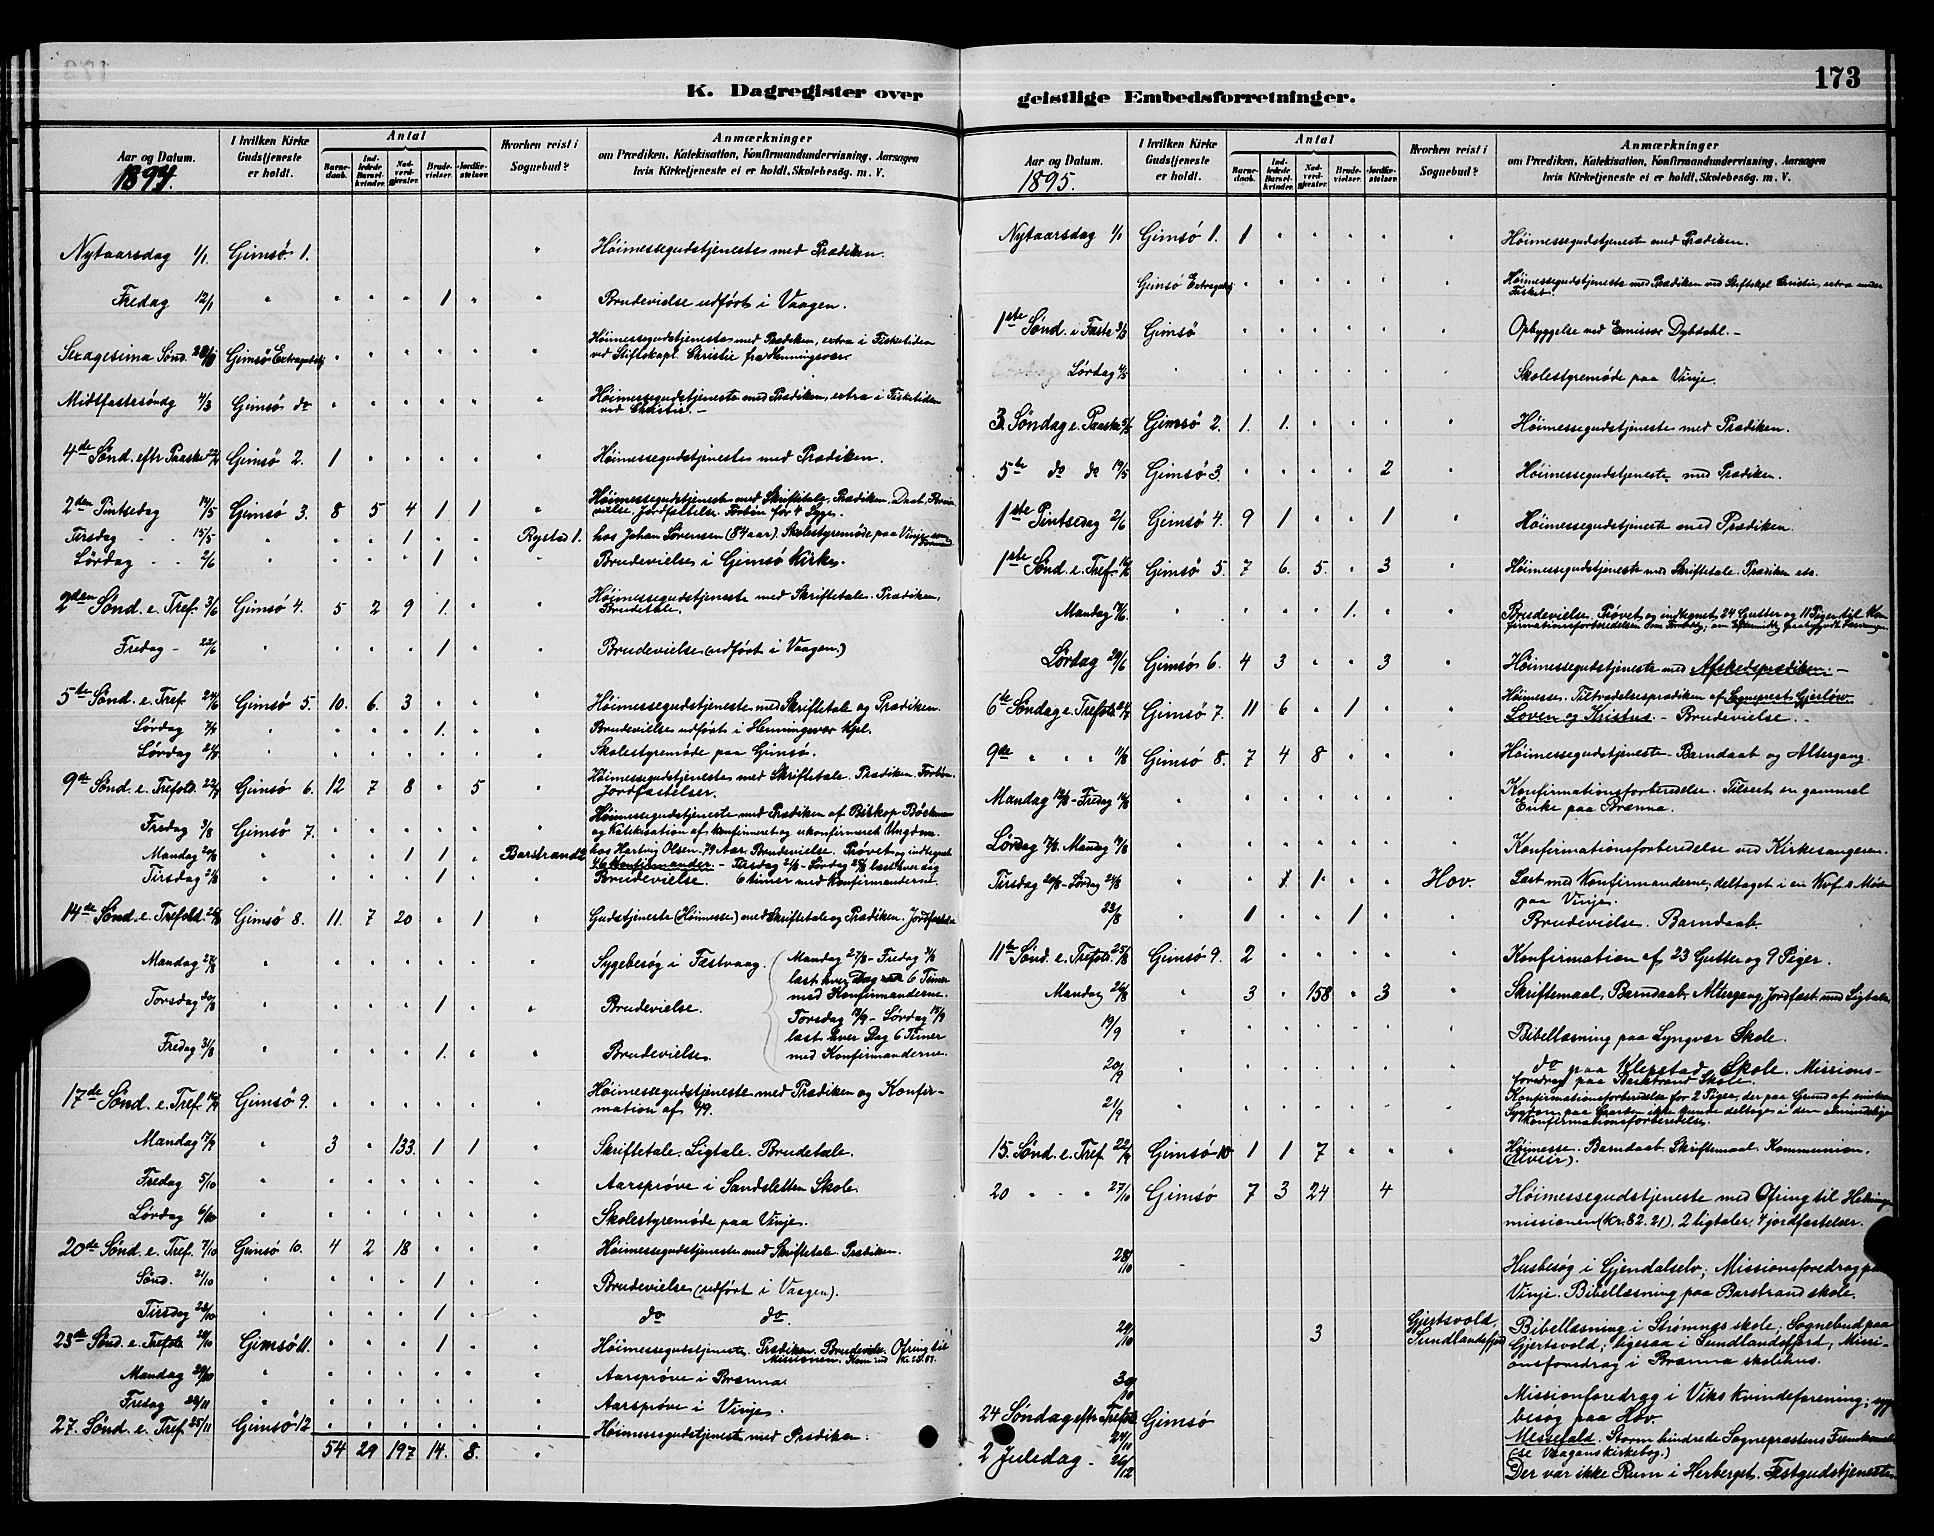 K. Dagregister over
Aar og Datum. | I hvilken Kirke Gudstjeneste er holdt. | Antal: Barnedaab. | Indledede Barselkvinder. | Nadverdgjester. | Brudevielser. | Jordfæstelser. | Hvorhen reist i Sognebud? | Anmærkninger om Prædiken, Katekisation, Konfirmandundervisning, Aarsagen hvis Kirketjeneste ei er holdt, Skolebesøg. m. V.
1894.
Nytaarsdag 1/1. Gimsö 1. " Höimessegudstjeneste med Prædiken.
Fredag 12/1 " " " " 1 " " Brudevielse udfört i Vaagen.
Sexagesima Sønd. Gimsö Extragudstj " " " " " " Höimessegudstjeneste med Prædiken, extra i Fisketiden
ved Stiftskapl. Christie fra Henningsvær.
Midtfastesöndg 4/3 Gimsö do " " " " " " Höimessegudstjeneste med Prædiken, extra i Fisketiden
ved Christie. –
4de Sönd. eftr Paaske Gimsö 2. 1 " " " " " Höimessegudstjeneste med Prædiken.
2den Pintsedag 14/5 Gimsö 3. 8 5 4 1 1 " Höimessegudstjeneste med Skriftetale, Prædiken, Daab,
vielse, Jordfæstelse. Forbön for 4 Syge.
Tirsdag 15/5 " " " 1 " " Rystad 1. hos Johan Sörensen (84 aar). Skolestyremöde paa Vinje
Lördag 2/6 " " " " 1 " " Brudevielse i Gimsö Kirke.
2den Sönd. e. Tref. 3/6 Gimsö 4. 5 2 9 1. " " Höimessegudstjeneste med Skriftetale. Prædiken,
Brudetale.
Fredag – 22/6 " " " " 1 " " Brudevielse (udfört i Vaagen.)
5te Sönd. e. Tref 24/6 Gimsö 5. 10. 6. 3 " " " Höimessegudstjeneste med Skriftetale og Prædiken.
Lördag 7/7 " " " " 1. " " Brudevielse udfört i Henningsvær Kpl.
Lördag 21/7 " " " " " " " Skolestyremöde paa Gimsö.
9de Sönd. e. Trefold. 22/7 Gimsö 6. 12 7 8 " 5 " Höimessegudstjeneste med Skriftetale. Prædiken. Forbön.
Jordfæstelser.
Fredag 3/8 Gimsö 7. " " " " " " Höimessegudstjeneste med Prædiken af Biskop Böckman
og Katekisation af konfirmeret og ukonfirmeret Ungdom.
Mandag 20/8 " " " 1 1 " Barstrand 2 hos Hartvig Olsen. 79 Aar. Brudevielse. Prövet og indtegnet
Konfirmander – Tirsdag 21/8 – Lördag 25/8 læst hver dag
Tirsdag 21/8 " " " " 1. " " Brudevielse. 6 timer med Konfirmanderne.
14de Sönd. e. Trefold. 26/8 Gimsö 8. 11. 7 20 " 1 " Gudstjeneste (Höimesse) med Skriftetale og Prædiken. Jordfæstelse
Mandag 27/8 " " " " " " " Sygebesög i Festvaag. Mandag 27/8 – Fredag 31/8
læst hver Dag 6 Timer
med Konfirmanderne.
Torsdag 30/8 " " " " 1 " " Brudevielse. Torsdag 13/9 – Lördag 15/9
læst hver Dag 6 Timer
Fredag 31/8 " " " " 1. " " Brudevielse. med Konfirmanderne.
17de Sönd. e. Tref 16/9 Gimsö 9. " " " " " " Höimessegudstjeneste med Prædiken og Konfir-
mation af 49.
Mandag 17/9 " 3 " 133. 1 1 " Skriftetale. Ligtale. Brudetale.
Fredag 5/10 " " " " " " " Aarspröve i Sandsletten Skole.
Lördag 6/10 " " " " " " " Skolestyremöde paa Vinje.
20de Sönd. e. Tref. 7/10 Gimsö 10. 4 2 18 " " " Höimessegudstjeneste med Skriftetale. Prædiken.
Sönd. 21/10 " " " " 1 " " Brudevielse (udfört i Vaagen).
Tirsdag 23/10 " " " " 1 " " do do.
23de Sönd. e. Trefolr 28/10 Gimsö 11. " " " 1 " " Höimessegudstjeneste. Prædiken. Brudevielse. Ofring til
Missionen.
Mandag 29/10 " " " " " " " Aarspröve i Brænna
Fredag 23/11 " " " " " " " Aarspröve i Vinje.
27. Sönd. e. Tref 25/11 Gimsö 12 " " " " " " Höimessegudstjeneste med Prædiken.
54 29 197 14. 8. "
173
geistlige Embedsforretninger.
Aar og Datum. | I hvilken Kirke Gudstjeneste er holdt. | Antal: Barnedaab. | Indledede Barselkvinder. | Nadverdgjester. | Brudevielser. | Jordfæstelser. | Hvorhen reist i Sognebud? | Anmærkninger om Prædiken, Katekisation, Konfirmandundervisning, Aarsagen hvis Kirketjeneste ei er holdt, Skolebesøg. m. V.
1895.
Nytaarsdag 1/1 Gimsö 1. 1 " " " " " Höimessegudstjeneste med Prædiken.
Gimsö Extragudstj " " " " " " Höimessegudstjeneste med Prædiken ved Stiftskpl Christie, extra under
Fisket.
1ste Sönd. i Faste 3/3 Gimsö " " " " " " Opbyggelse ved Emissær Dybdahl. –
Lördag 4/5 " " " " " " " Skolestyremöde paa Vinje.
3. Söndag e. Paaske 5/5 Gimsö 2. 1. 1. " " " " Höimessegudstjeneste med Prædiken.
5te do do 19/5 Gimsö 3. " " " " 2 " Höimessegudstjeneste med Prædiken.
1ste Pintsedag 2/6 Gimsö 4. 9 1 " " 1 " Höimessegudstjeneste med Prædiken.
1ste Sönd. e. Tref. 16/6 Gimsö 5. 7 6. 5. " 3 " Höimessegudstjeneste med Skriftetale. Prædiken etc.
Mandag 17/6. " " " " 1. " " Brudevielse. Prövet og indtegnet 24 Gutter og 11 Piger til Kon
firmationsforberedelsen
Lördag 29/6 Gimsö 6. 4 3 " " 3 " Höimessegudstjeneste med Afskedsprædiken. –
6te Söndag e. Trefold. 21/7 Gimsö 7. 11 6 " 1 " " Höimesse. Tiltrædelsesprædiken af Sognepræst Gjerlöw
Loven og Kristus – Brudevielse. –
9de " " 11/8 Gimsö 8. 7 4 8 " " " Höimessegudstjeneste – Barndaab og Altergang.
Mandag 12/8 – Fredag 16/8 " " " " " " " Konfirmationsforberedelse. Tilseet en gammel
Enke paa Brænna.
Lördag 17/8. Mandag 19/8 " " " " " " " Konfirmationsforberedelse ved Kirkesangeren.
Tirsdag 20/8 – Lördag 24/8 " " 1 1. " " Hov. Læst med Konfirmanderne, deltaget i en
paa Vinje.
23/8 " 1 " " 1 " " Brudevielse. Barndaab.
11te Sönd. e. Trefold. 25/8 Gimsö 9. 2 " " " " " Konfirmation af 23 Gutter og 9 Piger.
Mandag 26/8 " 3 " 158 " 3 " Skriftemaal, Barndaab, Altergang, Jordfæst. med Ligtale.
19/9 " " " " " " " Bibellæsning paa Lyngvær Skole.
20/9 do paa Klepstad Skole. Missions-
foredrag paa Barstrand Skole.
21/9 " " " " " " " Konfirmationsforberedelse for 2 Piger, der paa Grund af
Sygdom paa Gaarden ikke kunde deltage i den almindelige
Konfirmationsforberedelse.
15. Sönd. e. Tref 22/9 Gimsö 10 1 1 7 " " " Höimesse. Barndaab. Skriftemaal. Kommunion.
(Uveir).
20 " " " 27/10 Gimsö 7 3 24 4 Höimessegudstjeneste med Ofring til Hedninge
missionen (kr. 82.21), 2 ligtaler, 4 jordfæstelser.
28/10 " Husbesög i Gjendalselv; Missionsforedrag paa
Vinje. Bibellæsning paa Barstrand skole.
29/10 3 Gjertsvold, Sundlandsfjord Bibellæsning i Strömnæs skole; Sognebud paa
Gjertsvold; ligesaa i Sundlandsfjord; Missi-
onsforedrag i Brænna skolehus.
30/10 Missionforedrag i Viks Kvindeforening; syge
besög paa Hov.
24 Söndag eftr Trefold. 24/11 Gimsö Messefald. Storm hindrede Sognepræstens Fremkomst
(se Vaagans kirkebog.)
2 Juledag – 26/12 Der var ikke Rum i Herberget. Festgudstjeneste